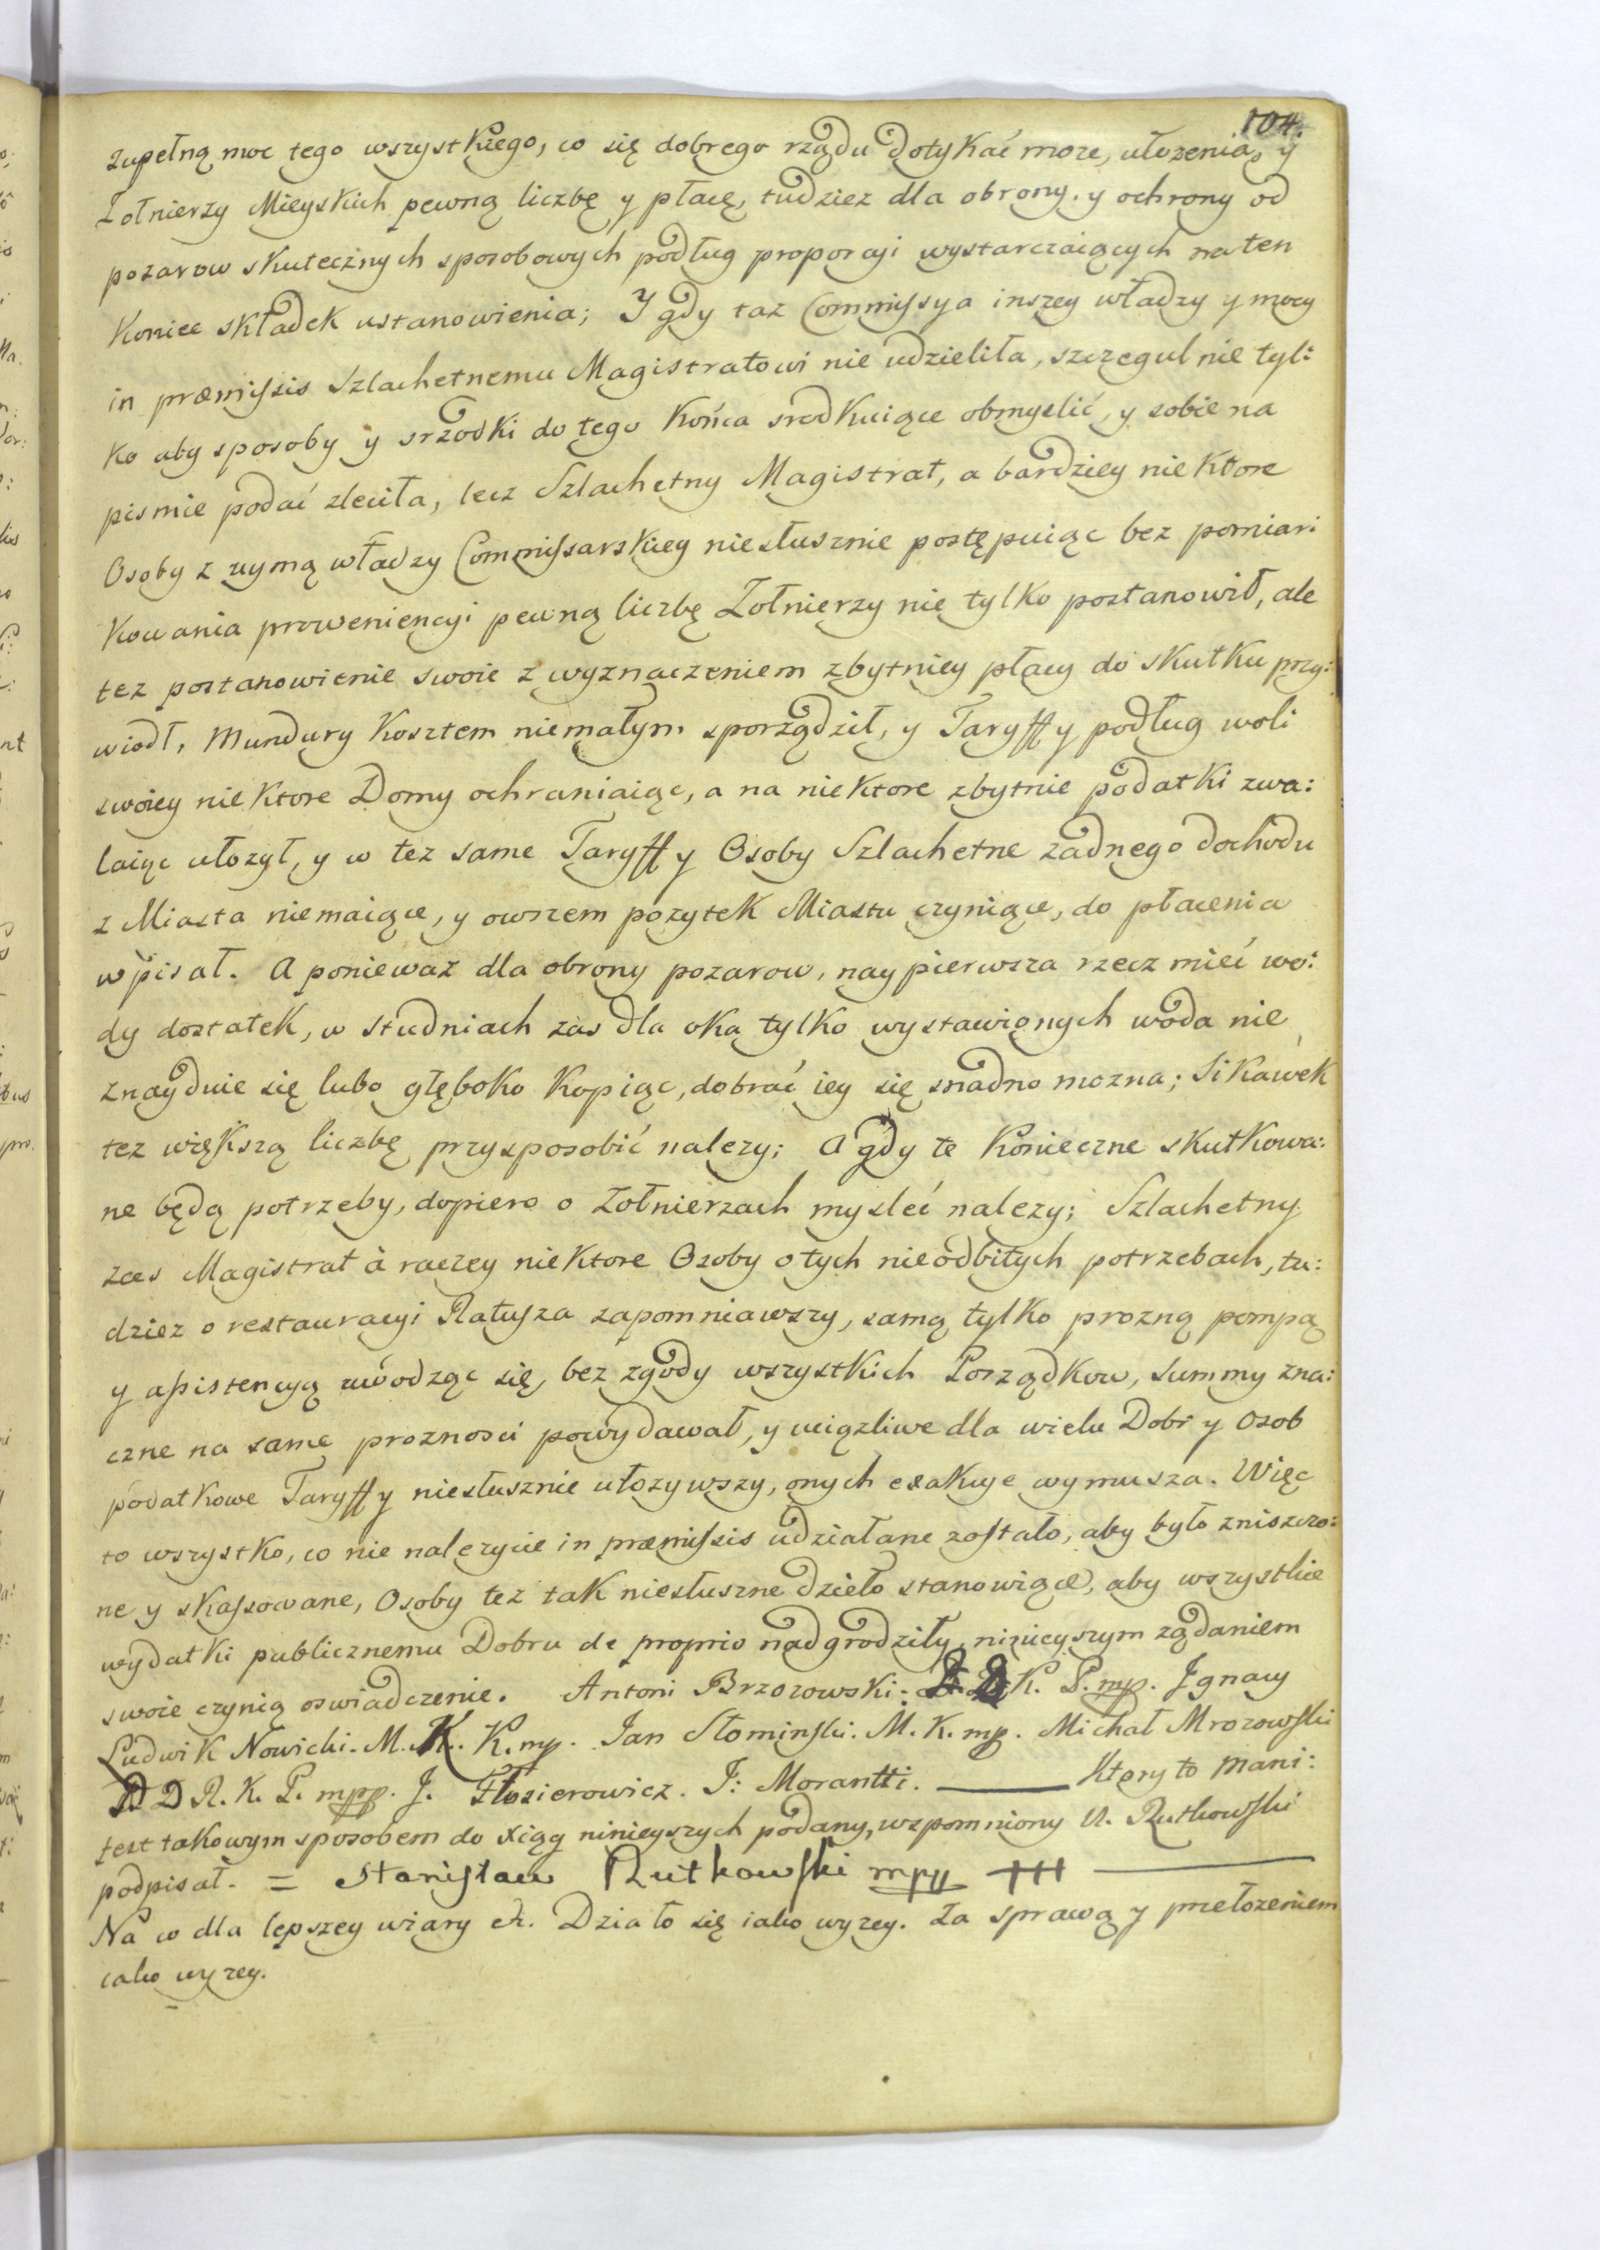 104.
zupełną moc tego wszystkiego, co się dobrego rządu dotykać może, ułożenia, y
Zołnierzy Mieyskich pewną liczbę y płacę, tudziez dla obrony y ochrony od
pozarow skutecznych sposobowych podług proporcyi wystarczaiących na ten
Koniec składek ustanowienia; Y gdy taz Commissya inszey władzy y mocy
in præmissis Szlachetnemu Magistratowi nie udzieliła, szczegulnie tyl:
ko aby sposoby y srzodki do tego Końca srodkuiące obmyslić, y sobie na
pismie podać zleciła, lecz Szlachetny Magistrat, a bardziey nie Ktore
Osoby z uymą władzy Commissarskiey niesłusznie postępuiąc bez pomiar:
Kowania proweniencyi pewną liczbę Zołnierzy nie tylko postanowił, ale
tez postanowienie swoie z wyznaczeniem zbytniey płacy do skutku przy:
wiodł, Mundury Kosztem niemałym sporządził, y Taryffy podług woli
swoiey nie Ktore Domy ochraniaiąc, a na nie Ktore zbytnie podatki zwa:
laiąc ułozył, y w tez same Taryffy Osoby Szlachetne zadnego dochodu
z Miasta niemaiące, y owszem pozytek Miastu czyniące, do płacenia
wpisał. A poniewaz dla obrony pozarow, naypierwsza rzecz mieć wo:
dy dostatek, w studniach zas dla oka tylko wystawionych woda nie
znayduie się lubo głęboko Kopiąc, dobrać iey się snadno mozna; Sikawek
tez większą liczbę przysposobić nalezy; A gdy te Konieczne skutkowa:
ne będą potrzeby, dopiero o Zołnierzach mysleć nalezy; Szlachetny
zas Magistrat à raczey nie Ktore Osoby o tych nieodbitych potrzebach, tu:
dziez o restauracyi Ratusza zapomniawszy, samą tylko prozną pompą
y assistencyą uwodząc się, bez zgody wszystkich Porządkow, Summy zna:
czne na samę proznosci powydawał, y uciązliwe dla wielu Dobr y Osob
podatkowe Taryffy niesłusznie ułozywszy, onych exakcye wymusza. Więc
to wszystko, co nie nalezycie in præmissis udziałane zostało, aby było zniszczo:
ne y skassowane, Osoby tez tak niesłuszne dzieło stanowiące, aby wszystkie
wydatki publicznemu Dobru de proprio nadgrodziły, ninieyszym ządaniem
swoie czynią oswiadczenie. Antoni Brzozowski: K. P. mp. Jgnacy
Ludwik Nowicki. M. K. K. mp. Jan Słominski. M. K. mp. Michał Mrozowski
D D R. K. P. mpp. J. Flosierowicz. J: Morantti. Ktory to Mani:
fest takowym sposobem do xiąg ninieyszych podany, wspomniony U. Rutkowski
podpisał. = Stanisław Rutkowski mpp
Na co dla lepszey wiary &. Działo się iako wyzey. Za sprawą y przełozeniem
iako wyzey.